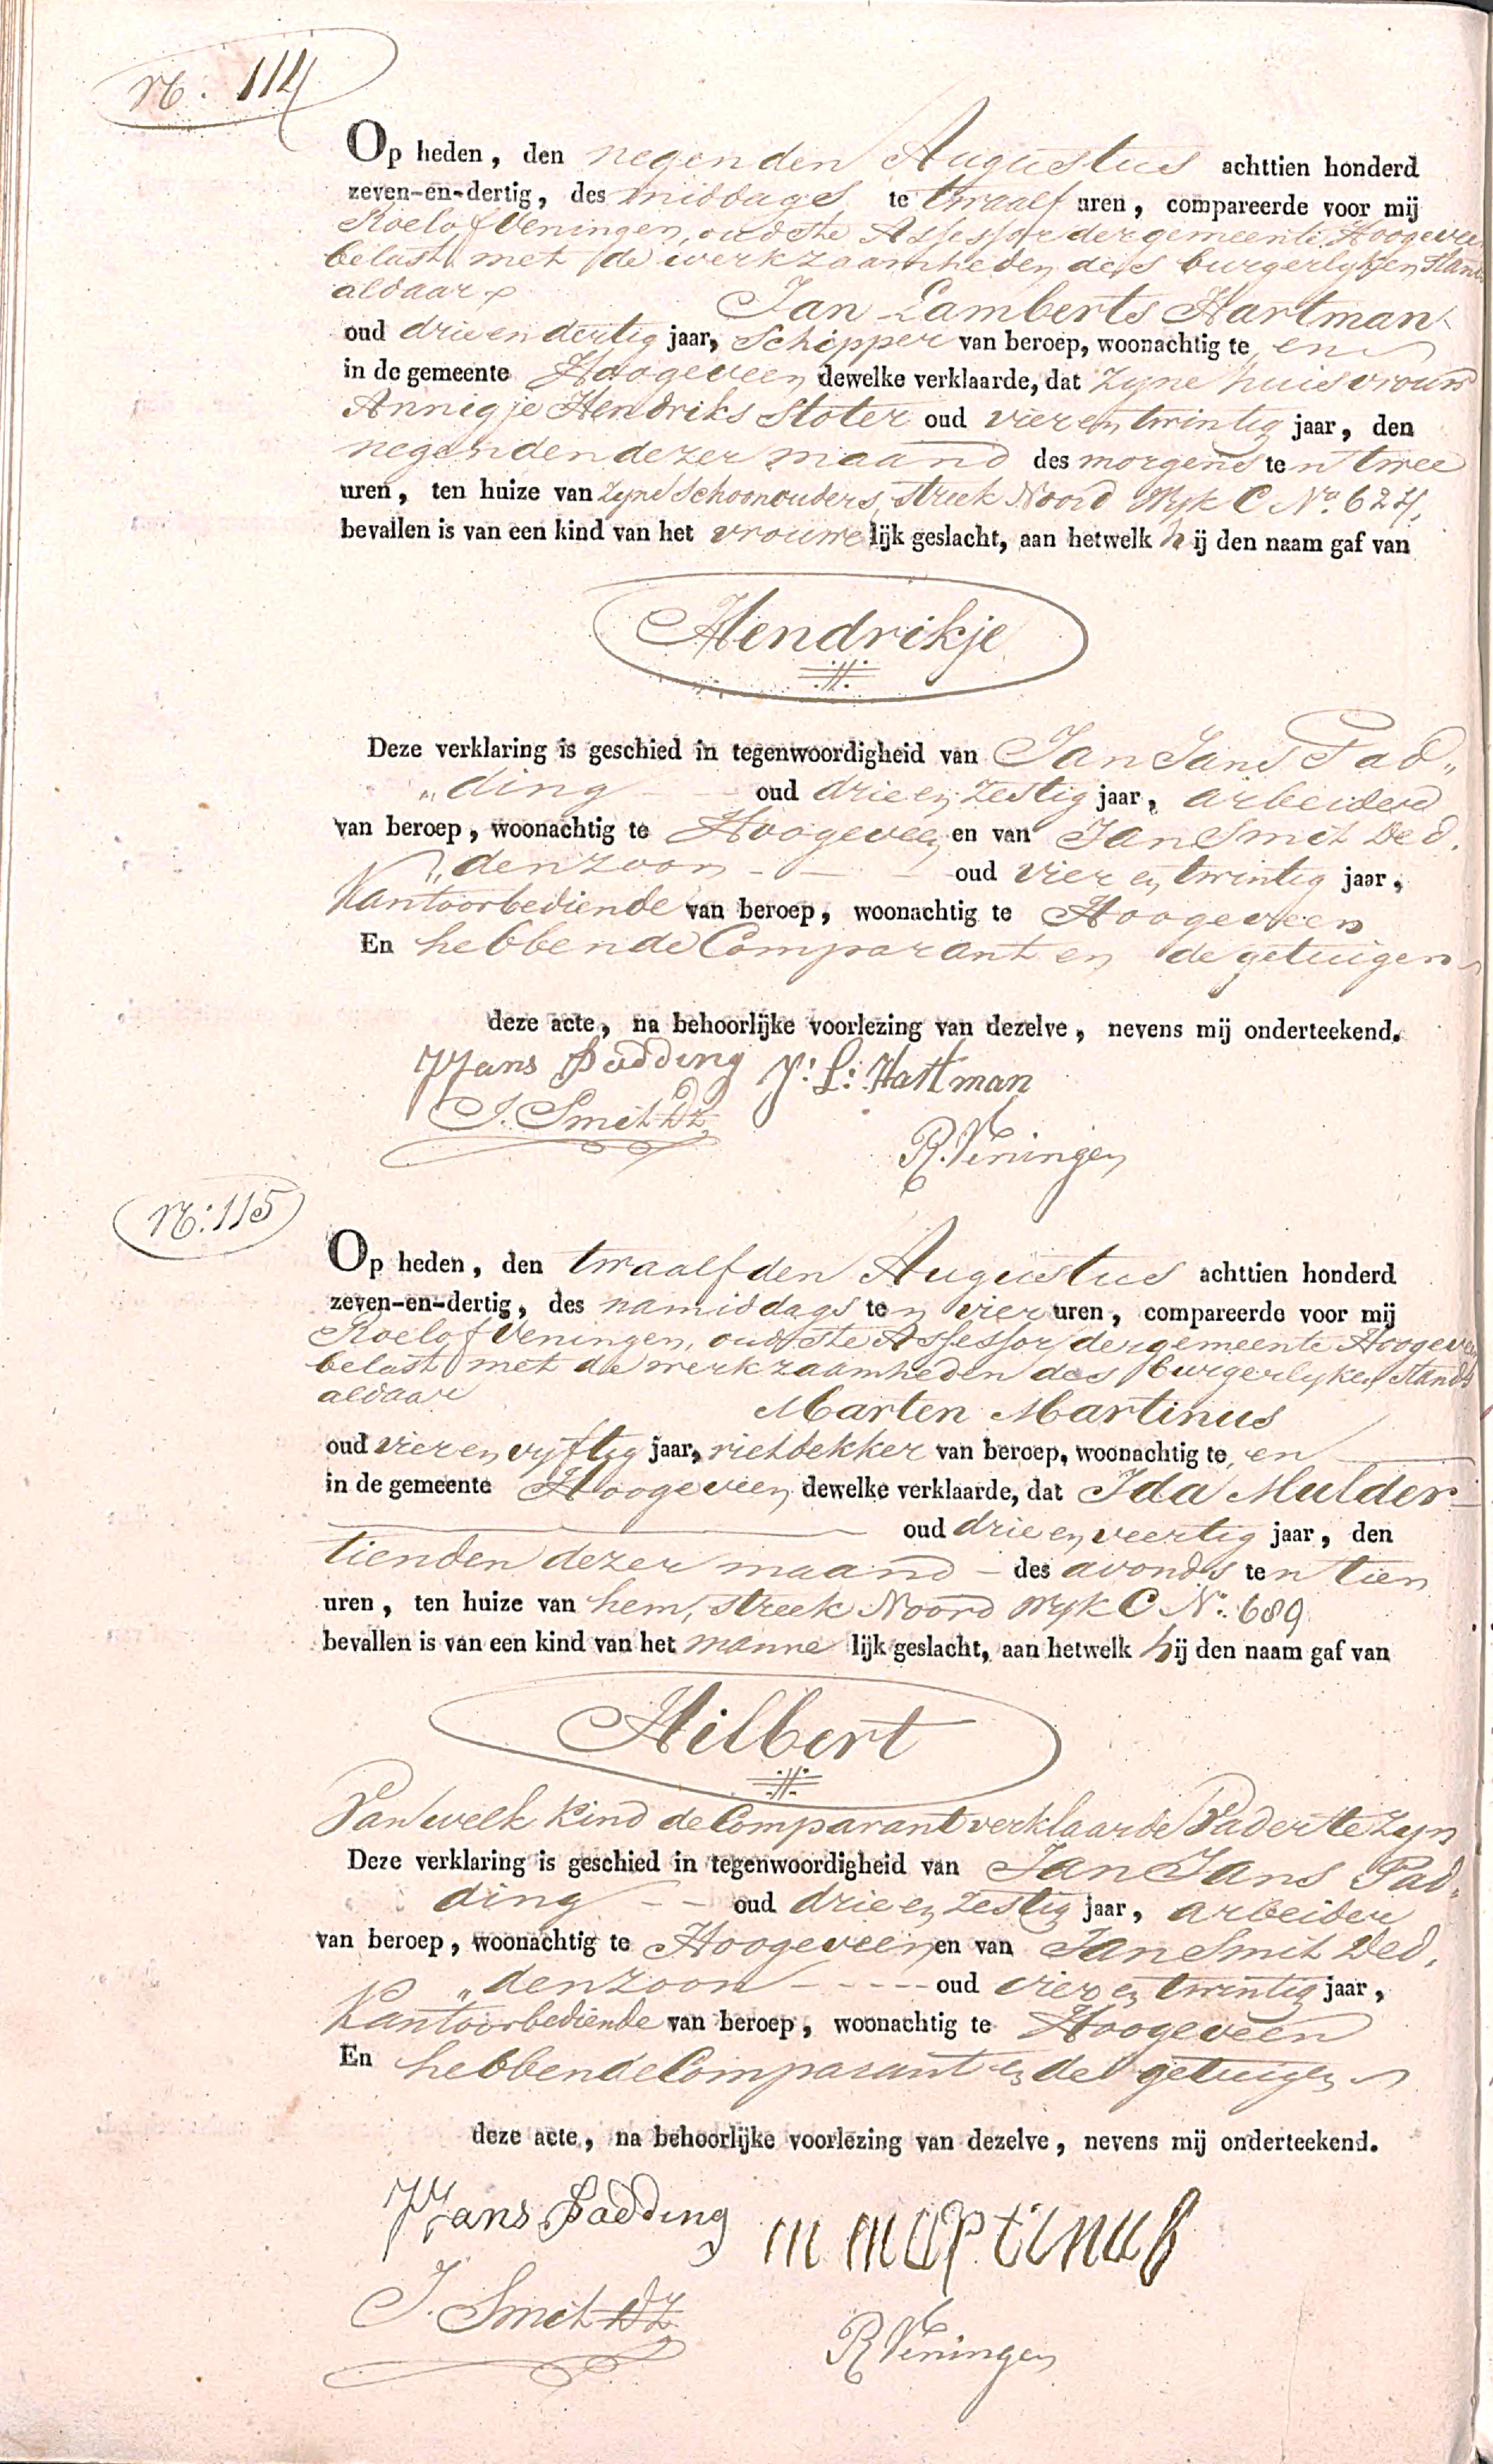 N: 114
Op heden, den negenden Augustus achttien honderd
zeven-en-dertig, des middags te twaalf uren, compareerde voor mij
Roelof Veningen, oudste Assessor der gemeente Hoogeveen
belast met de werkzaamheden des burgerlyken Stands
aldaar
Jan Lamberts Hartman
oud drie en dertig jaar, Schipper van beroep, woonachtig te en
in de gemeente Hoogeveen dewelke verklaarde, dat zyne huisvrouw
Annigje Hendriks Stoter oud vier en twintig jaar, den
negenden dezer maand des morgens ten twee
uren, ten huize van zyne Schoonouders, streek Noord Wyk C No. 624,
bevallen is van een kind van het vrouwelijk geslacht, aan hetwelk hij den naam gaf van
Hendrikje
Deze verklaring is geschied in tegenwoordigheid van Jan Jans Pad„
„ding - oud drie en zestig jaar, arbeider
van beroep, woonachtig te Hoogeveen en van Jan Smit Ded.
„denzoon - - - oud vier en twintig jaar,
Kantoorbediende van beroep, woonachtig te Hoogeveen
En hebbende Comparant en de getuigen
deze acte, na behoorlijke voorlezing van dezelve, nevens mij onderteekend.
JJans Padding J: L: Hartman
J. Smit Dz
R. Veningen
N: 115
Op heden, den twaalfden Augustus achttien honderd
zeven-en-dertig, des namiddags ten vier uren, compareerde voor mij
Roelof Veningen, oudste Assessor der gemeente Hoogeveen
belast met de werkzaamheden des burgerlyken Stands
aldaar
Marten Martinus
oud vier en vyftig jaar, rietdekker van beroep, woonachtig te en
in de gemeente Hoogeveen dewelke verklaarde, dat Ida Mulder
oud drie en veertig jaar, den
tienden dezer maand - des avonds ten tien
uren, ten huize van hem, streek Noord Wyk C N. 689
bevallen is van een kind van het mannelijk geslacht, aan hetwelk hij den naam gaf van
Hilbert
Van welk kind de Comparant verklaarde Vader te zyn
Deze verklaring is geschied in tegenwoordigheid van Jan Jans Pad„
ding - - oud drie en zestig jaar, arbeider
van beroep, woonachtig te Hoogeveen en van Jan Smit Ded.
„denzoon - - - - oud vier en twintig jaar,
Kantoorbediende van beroep, woonachtig te Hoogeveen
En hebbende Comparant en de getuigen
deze acte, na behoorlijke voorlezing van dezelve, nevens mij onderteekend.
JJans Padding m martinus
J. Smit Dz
R Veningen